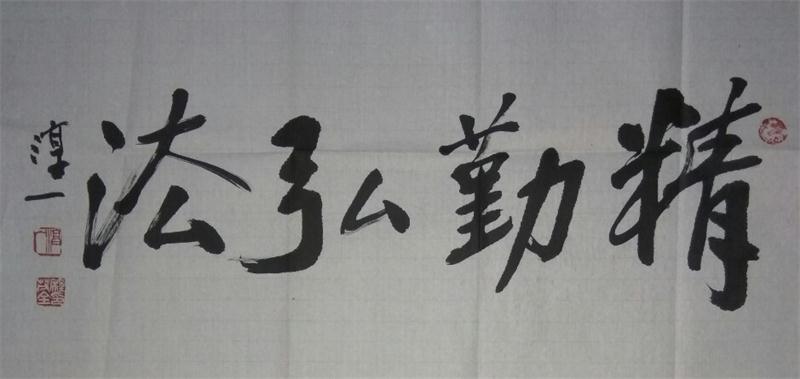 精勤弘法
淳一